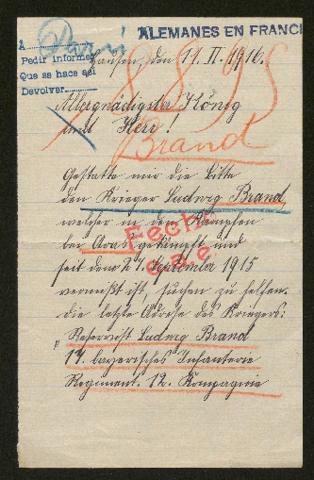 ALEMANES EN FRANCI
A Paris
Pedir informes
Que se hace así
Devolver
Hausen, den 11. II. 1916.
8895
Allergnädigster König
und Herr!
Brand
Gestatte mir die Bitte
den Krieger Ludwig Brand
welcher in den Kämpfen
bei Aras gekämpft und
seit den 27. September 1915
vermißt ist, suchen zu helfen.
die letzte Adresse des Kriegers:
Fecha
Reservist Ludwig Brand
17. bayerisches Infanterie
Regiment. 12. Kompagnie